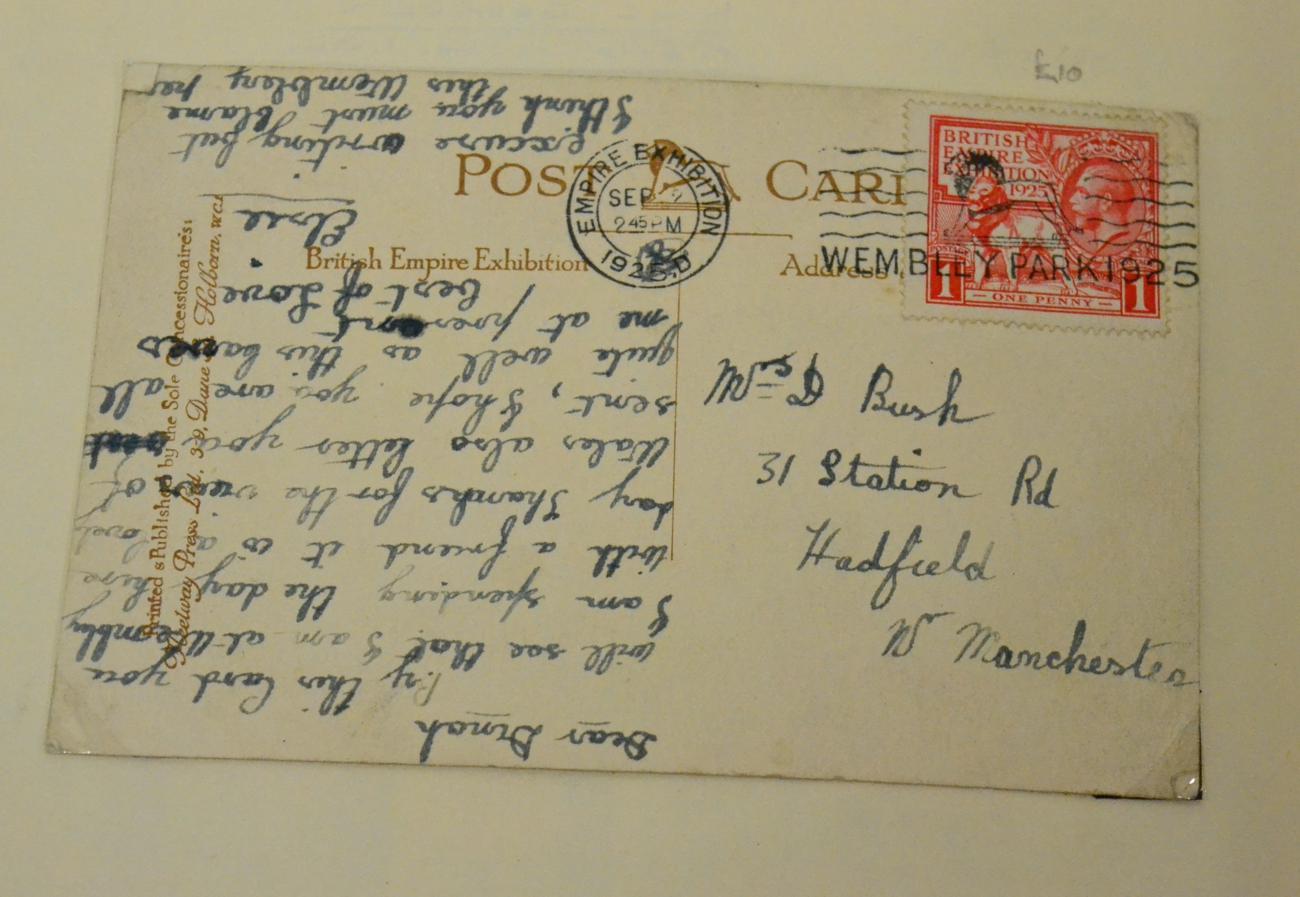 £10
POST CARD
British Empire Exhibition
Address
EMPIRE EXHIBITION
SEP
2 45 PM
1925
WEMBLEY PARK 1925
BRITISH
EMPIRE
EXHIBITION
1925
POSTAGE
1 ONE PENNY 1
Bush
31 Station Rd
Hadfield
Nr Manchester
Dear Dinah
By this Card you
will see that I am at Wembly
I am spending the day here
with a friend it is a lovely
day Thanks for the views of
Wales also letter you
sent, I hope you are all
quite well as this leaves
me at present
best of Love
Elsie
excuse writing but
I think you must blame
this Wembley pen
Printed & Published by the Sole Concessionaires:
Fleetway Press Ltd. 3-9, Dane St Holborn, W.C.1